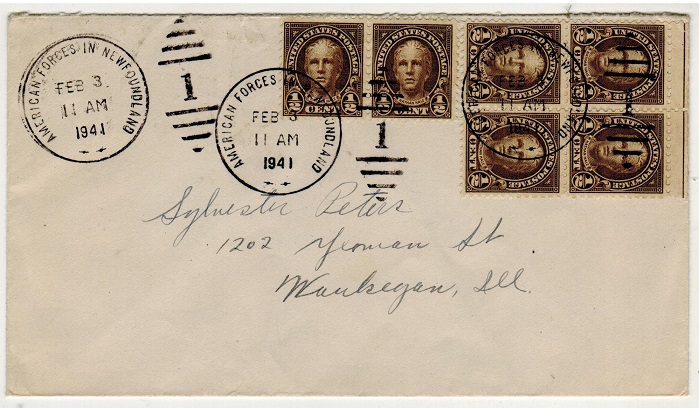 AMERICAN FORCES IN NEWFOUNDLAND
FEB 3
11 AM
1941
1
AMERICAN FORCES
NDLAND
FEB 3
11 AM
1941
1
UNITED STATES POSTAGE
½ CENT ½
UNITED STATES POSTAGE
½ CENT ½
UNITED STATES POSTAGE
UNITED STATES POSTAGE
½ ½
11 AM
UNITED STATES POSTAGE
½ ½
UNITED STATES POSTAGE
½ ½
Sylvester Peters
1202 Yeoman St
Waukegan, Ill.